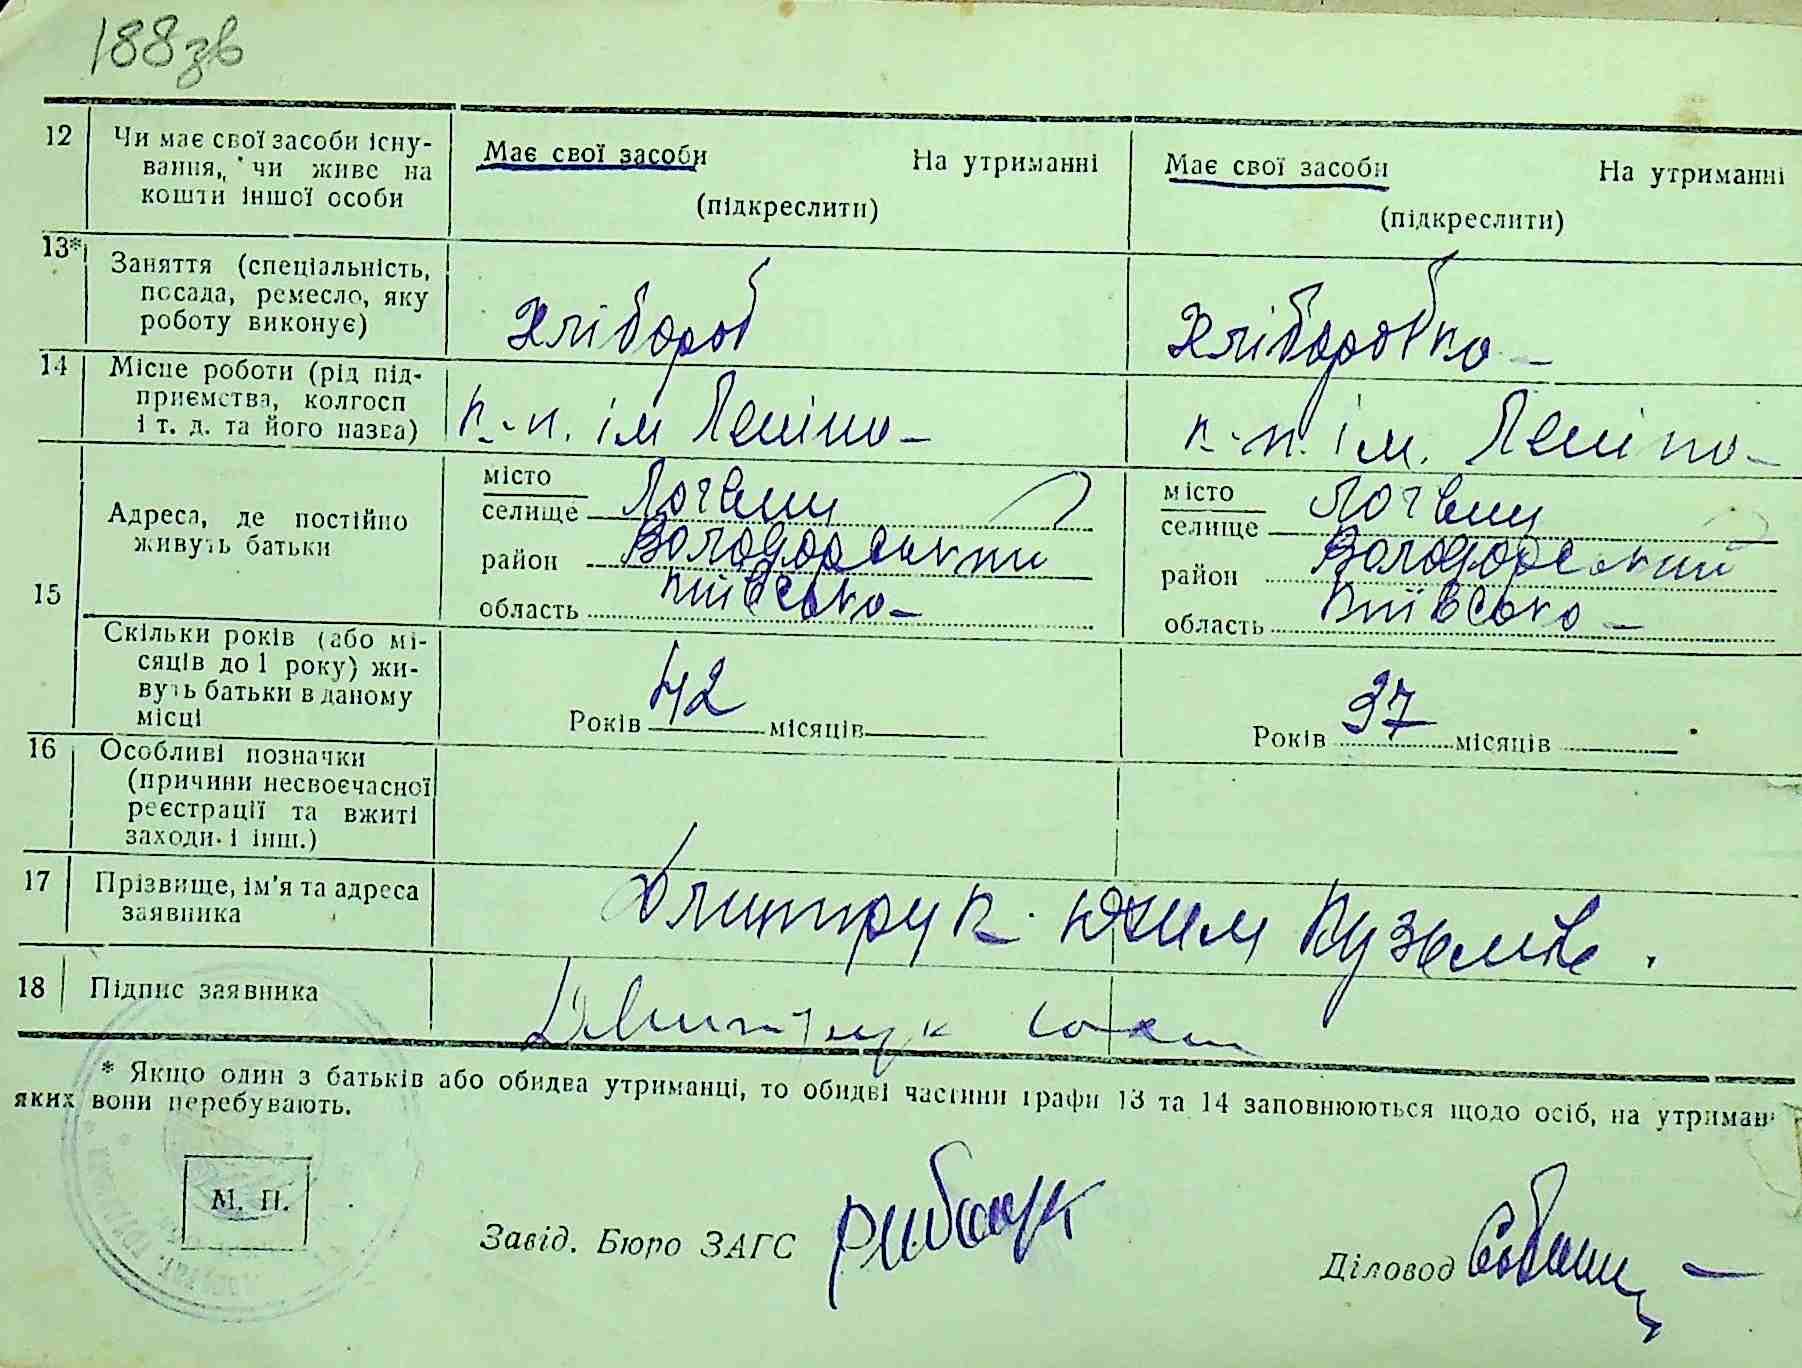 188зв
12 Чи має свої засоби існу-
вання, чи живе на
кошти іншої особи
Має свої засоби На утриманні
(підкреслити)
Має свої засоби На утриманні
(підкреслити)
13* Заняття (спеціальність,
посада, ремесло, яку
роботу виконує)
Хлібороб
Хліборобка
14 Місце роботи (рід під-
приємства, колгосп
і т. д. та його назва)
к-п. ім Леніна
к-п. ім. Леніна
15 Адреса, де постійно
живуть батьки
місто
селище Логвин
район Володарський
область Київська
місто
селище Логвин
район Володарський
область Київська
Скільки років (або мі-
сяців до 1 року) жи-
вуть батьки в даному
місці
Років 42 місяців
Років 37 місяців
16 Особливі позначки
(причини несвоєчасної
реєстрації та вжиті
заходи і інш.)
17 Прізвище, ім'я та адреса
заявника
Дмитрук Юхим Кузьмів.
18 Підпис заявника
Дмитрук Юхим
* Якщо один з батьків або обидва утриманці, то обидві частини графи 13 та 14 заповнюються щодо осіб, на утриман
яких вони перебувають.
М. П.
Завід. Бюро ЗАГС
Діловод